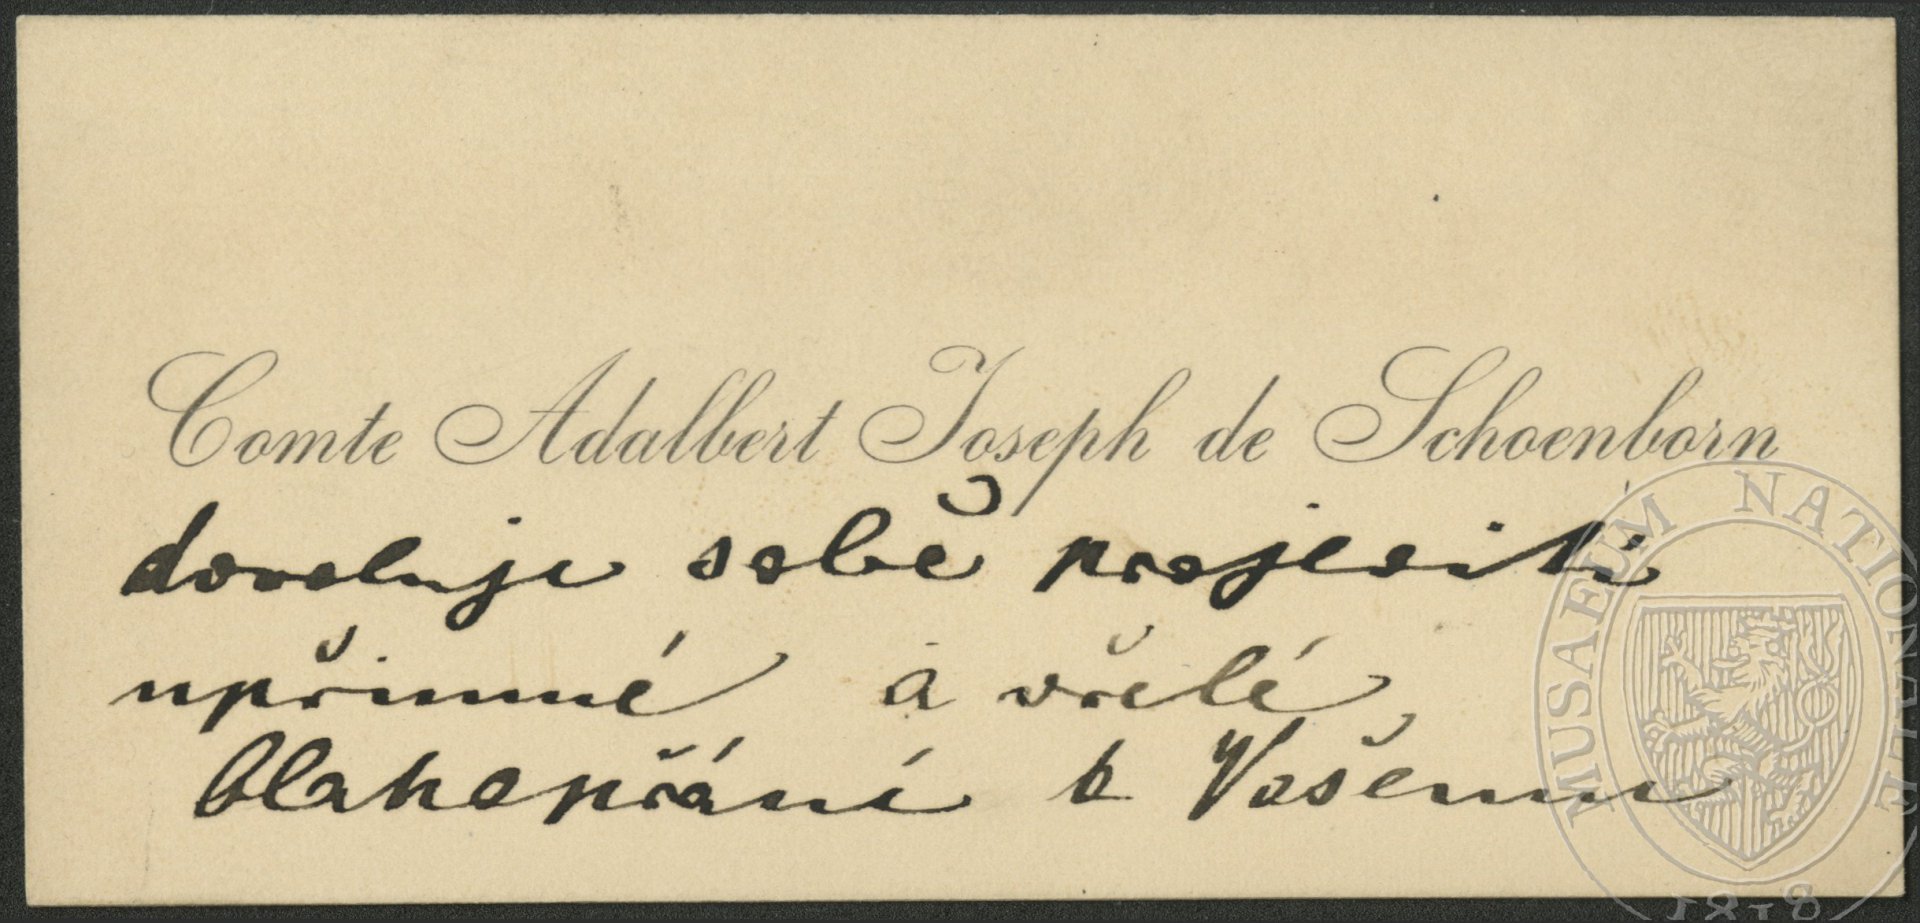 Comte Adalbert Joseph de Schoenborn
dovoluje sobě projeviti
upřímné a vřelé
blahopřání k Vašemu
MUSAEUM NATIONALE
1818